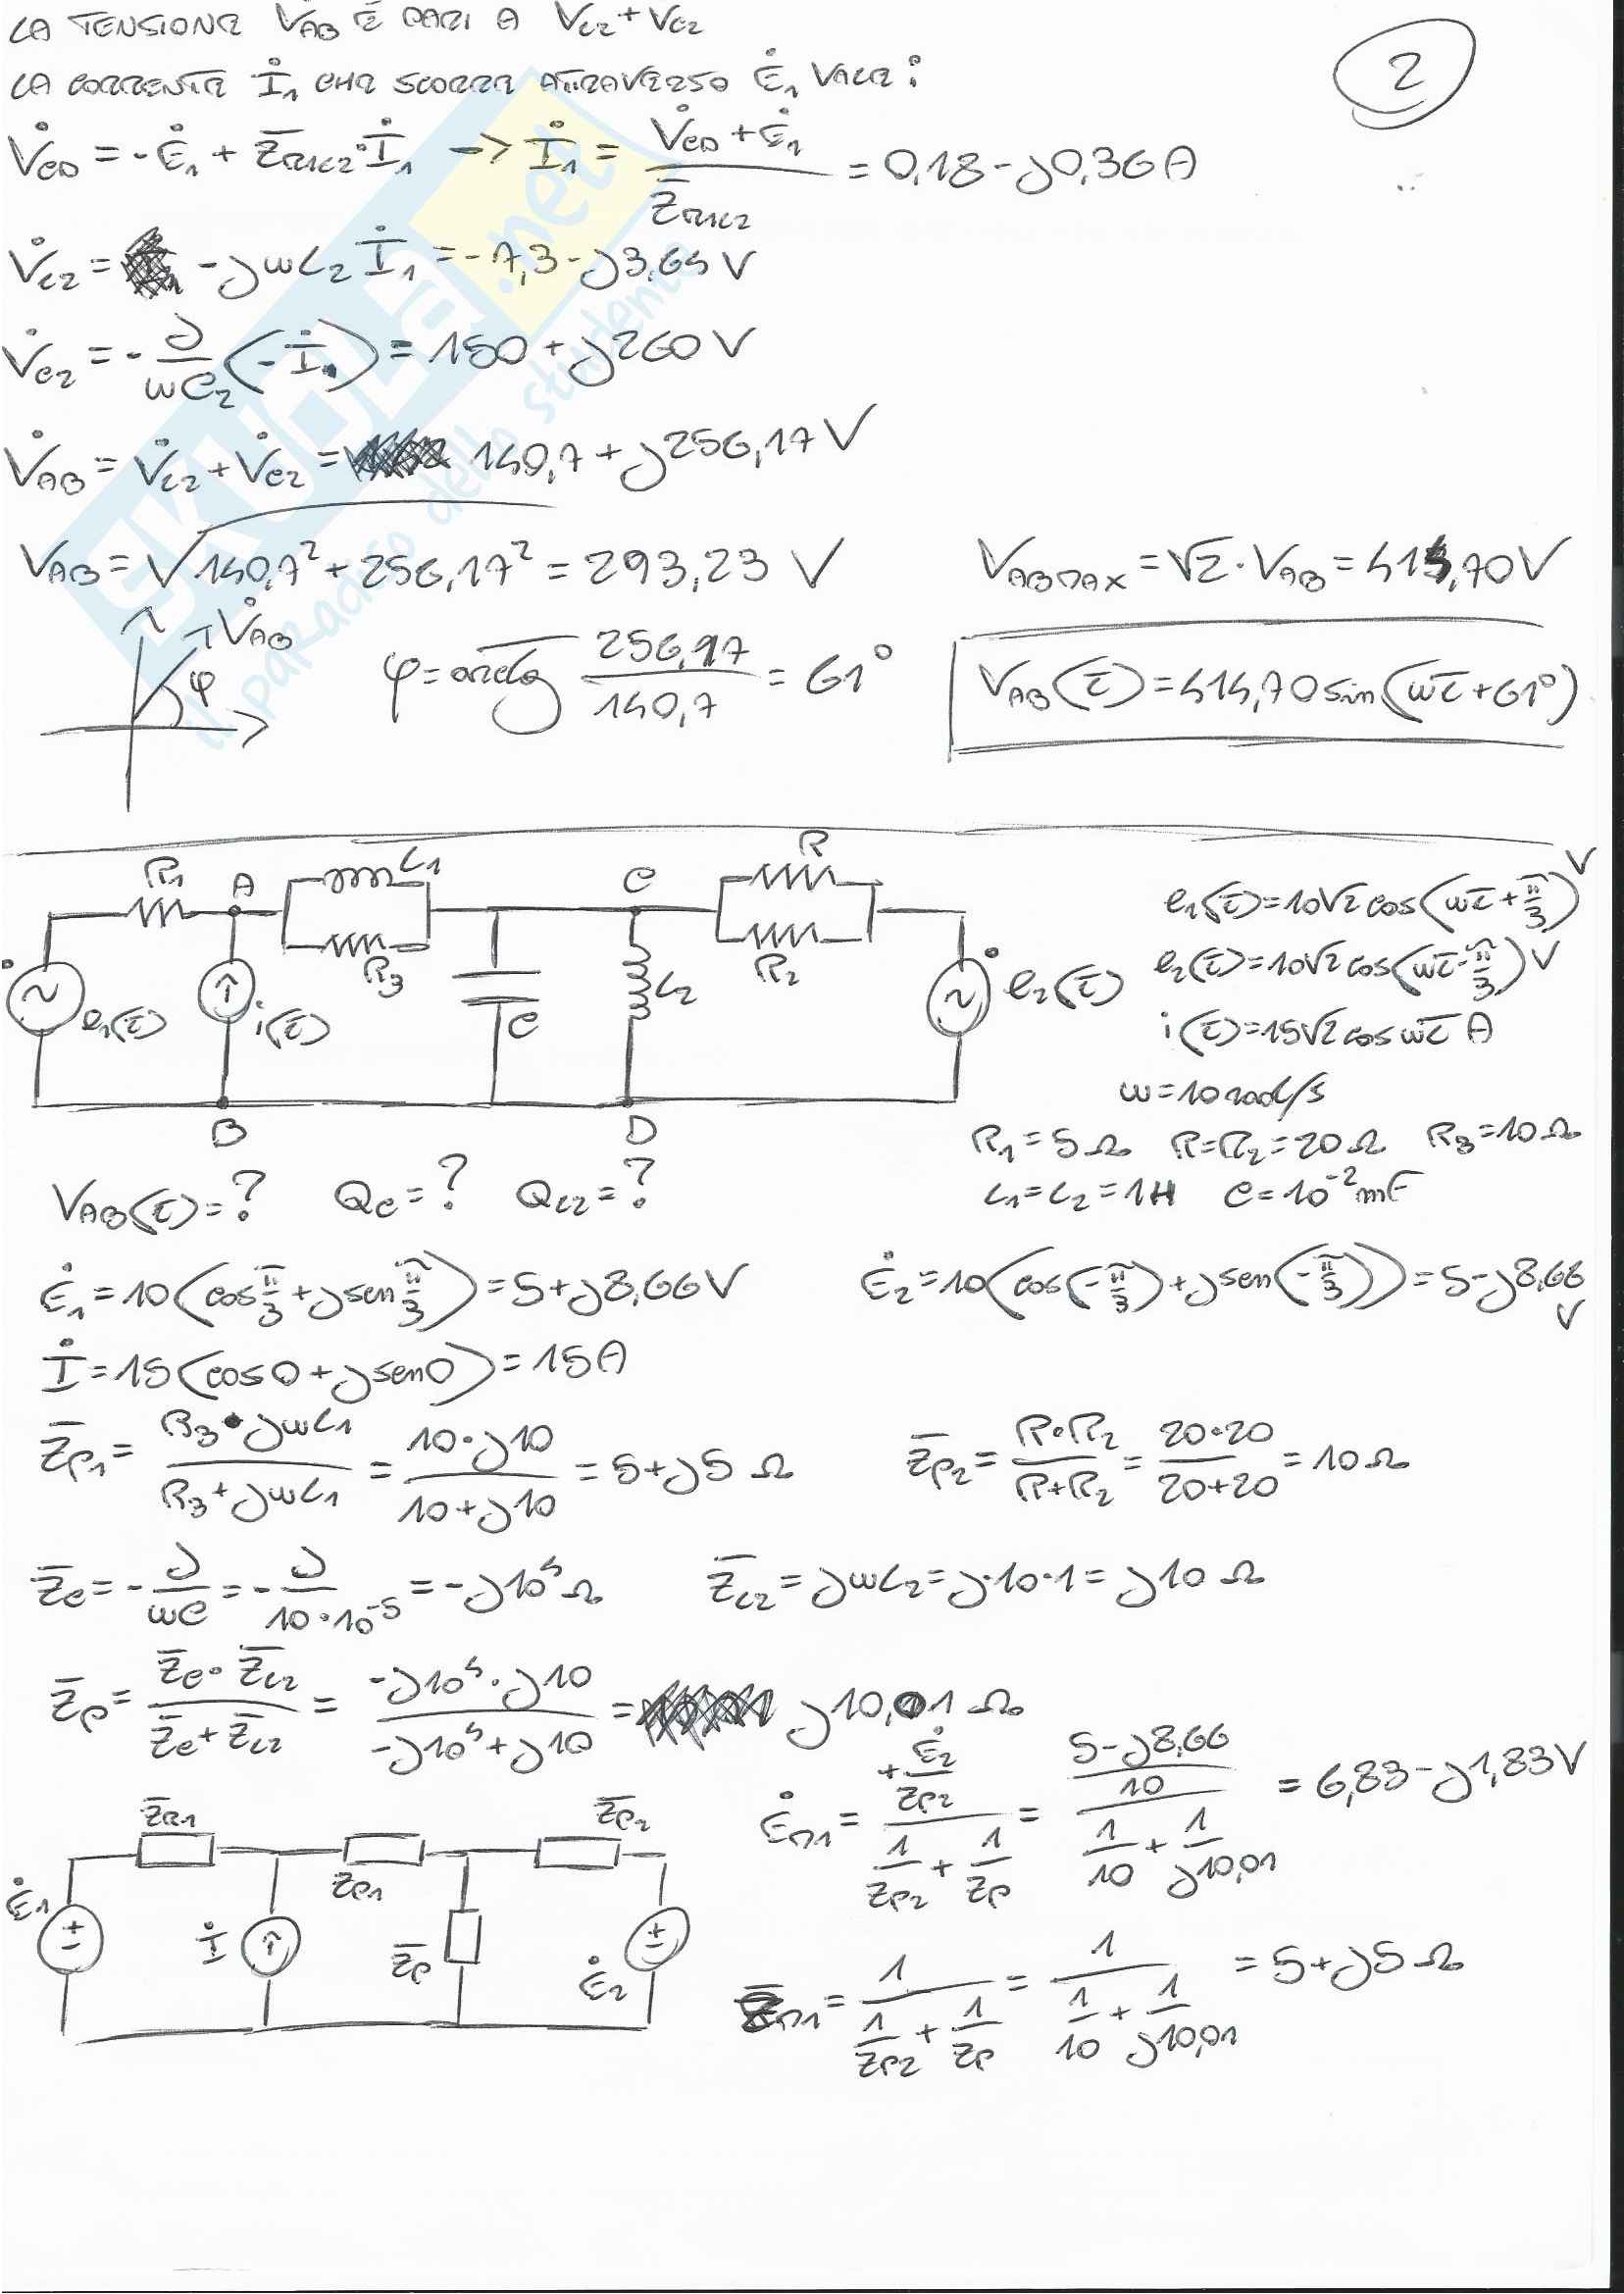 LA TENSIONE V̇AB È PARI A V̇L2 + V̇C2
2
LA CORRENTE İ1 CHE SCORRE ATTRAVERSO Ė1 VALE:
V̇CD = -Ė1 + Z̄R1L2·İ1 → İ1 = (V̇CD + Ė1) / Z̄R1L2 = 0,18 - j0,36 A
V̇L2 = -jωL2 İ1 = -7,3 - j3,64 V
V̇C2 = -j/(ωC2) (-İ) = 150 + j260 V
V̇AB = V̇L2 + V̇C2 = 140,7 + j256,17 V
VAB = √(140,7² + 256,17²) = 293,23 V
VABMAX = √2·VAB = 414,70 V
V̇AB
φ
φ = arctg 256,17/140,7 = 61°
VAB(t) = 414,70 sin(ωt + 61°)
R1 A L1 R3 C L2 C R R2
e1(t) i(t) e2(t)
B D
e1(t) = 10√2 cos(ωt + π/3) V
e2(t) = 10√2 cos(ωt - π/3) V
i(t) = 15√2 cos ωt A
ω = 10 rad/s
R1 = 5 Ω R = R2 = 20 Ω R3 = 10 Ω
L1 = L2 = 1H C = 10⁻² mF
VAB(t) = ? QC = ? QL2 = ?
Ė1 = 10(cos π/3 + j sen π/3) = 5 + j8,66 V
Ė2 = 10(cos(-π/3) + j sen(-π/3)) = 5 - j8,66 V
İ = 15(cos0 + j sen0) = 15 A
Z̄P1 = (R3·jωL1)/(R3 + jωL1) = (10·j10)/(10 + j10) = 5 + j5 Ω
Z̄P2 = (R·R2)/(R+R2) = (20·20)/(20+20) = 10 Ω
Z̄C = -j/(ωC) = -j/(10·10⁻⁵) = -j10⁴ Ω
Z̄L2 = jωL2 = j·10·1 = j10 Ω
Z̄P = (Z̄C·Z̄L2)/(Z̄C + Z̄L2) = (-j10⁴·j10)/(-j10⁴ + j10) = j10,01 Ω
ĖM1 = (+Ė2/Z̄P2)/(1/Z̄P2 + 1/Z̄P) = ((5 - j8,66)/10)/(1/10 + 1/j10,01) = 6,83 - j1,83 V
Z̄R1 Z̄P1 Z̄P2
Ė1 İ Z̄P Ė2
Z̄M1 = 1/(1/Z̄P2 + 1/Z̄P) = 1/(1/10 + 1/j10,01) = 5 + j5 Ω
SKUOLA.net
il paradiso dello studente